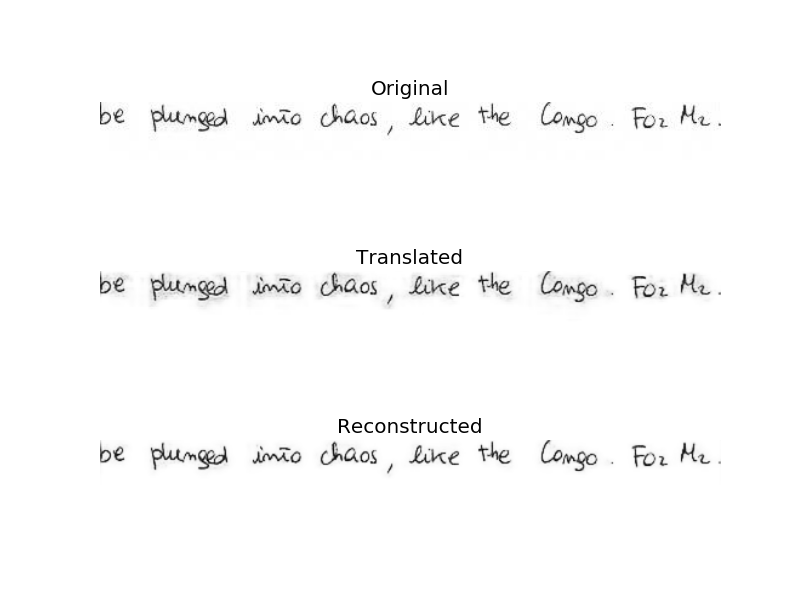 Original
be plunged into chaos, like the Congo. For Mr.
Translated
be plunged into chaos, like the Congo. For Mr.
Reconstructed
be plunged into chaos, like the Congo. For Mr.